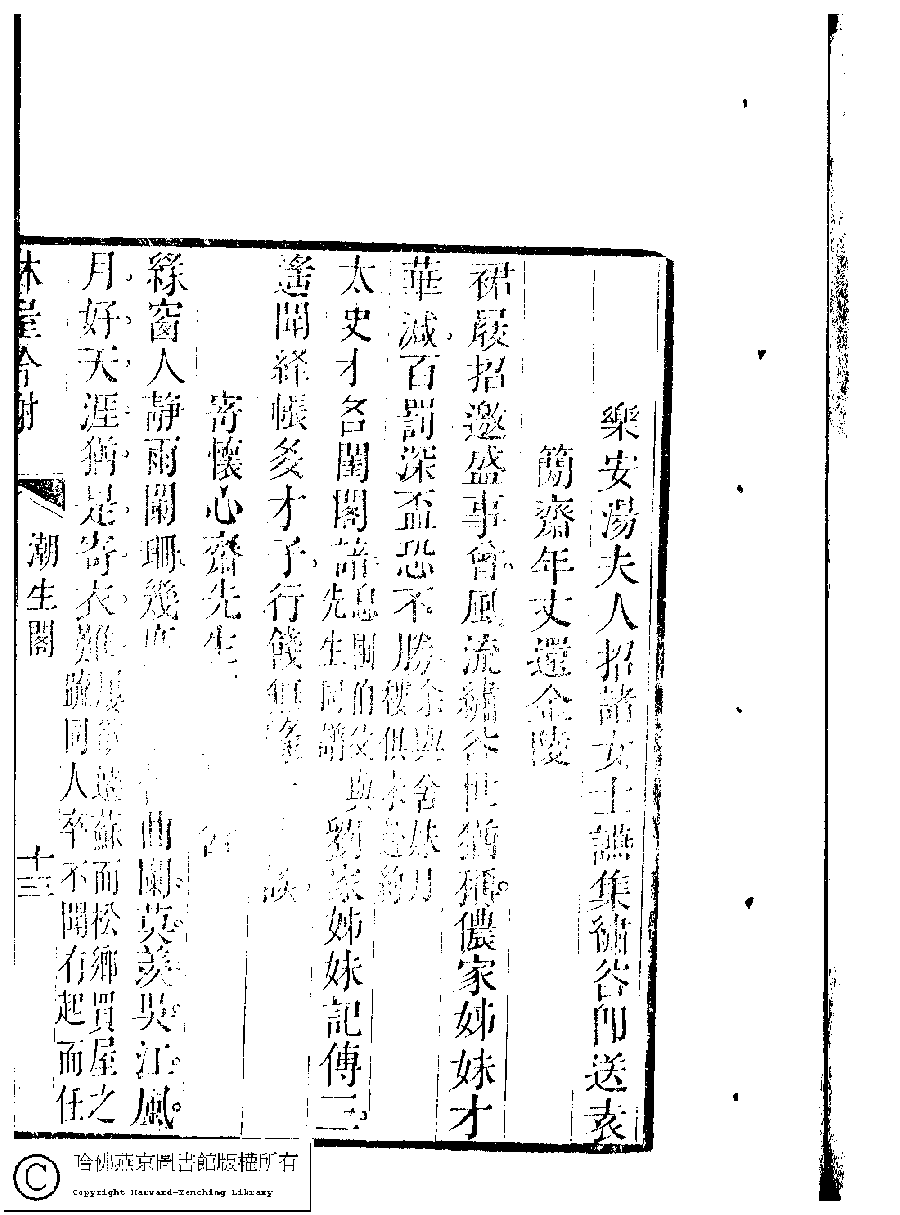 樂安湯夫人招諸女士讌集繡谷即送袁
簡齋年丈還金陵
裙屐招邀盛事曾風流繡谷世猶稱儂家姊妹才
華減百罰深盃恐不勝余與舍妹月樓俱未赴約
太史才名閨閣諳先生同譜與劉家姊妹記傳三
遙聞經帳多才子行餞
寄懷心齋先生
綠窗人靜雨闌珊幾 曲闌莫羨吳江風
月好天涯猶是寄衣難屢 蘇而松鄉買屋之疏同人卒不聞有起而任
林屋吟榭
潮生閣
十三
哈佛燕京圖書館版權所有
Copyright Harvard-Yenching Library